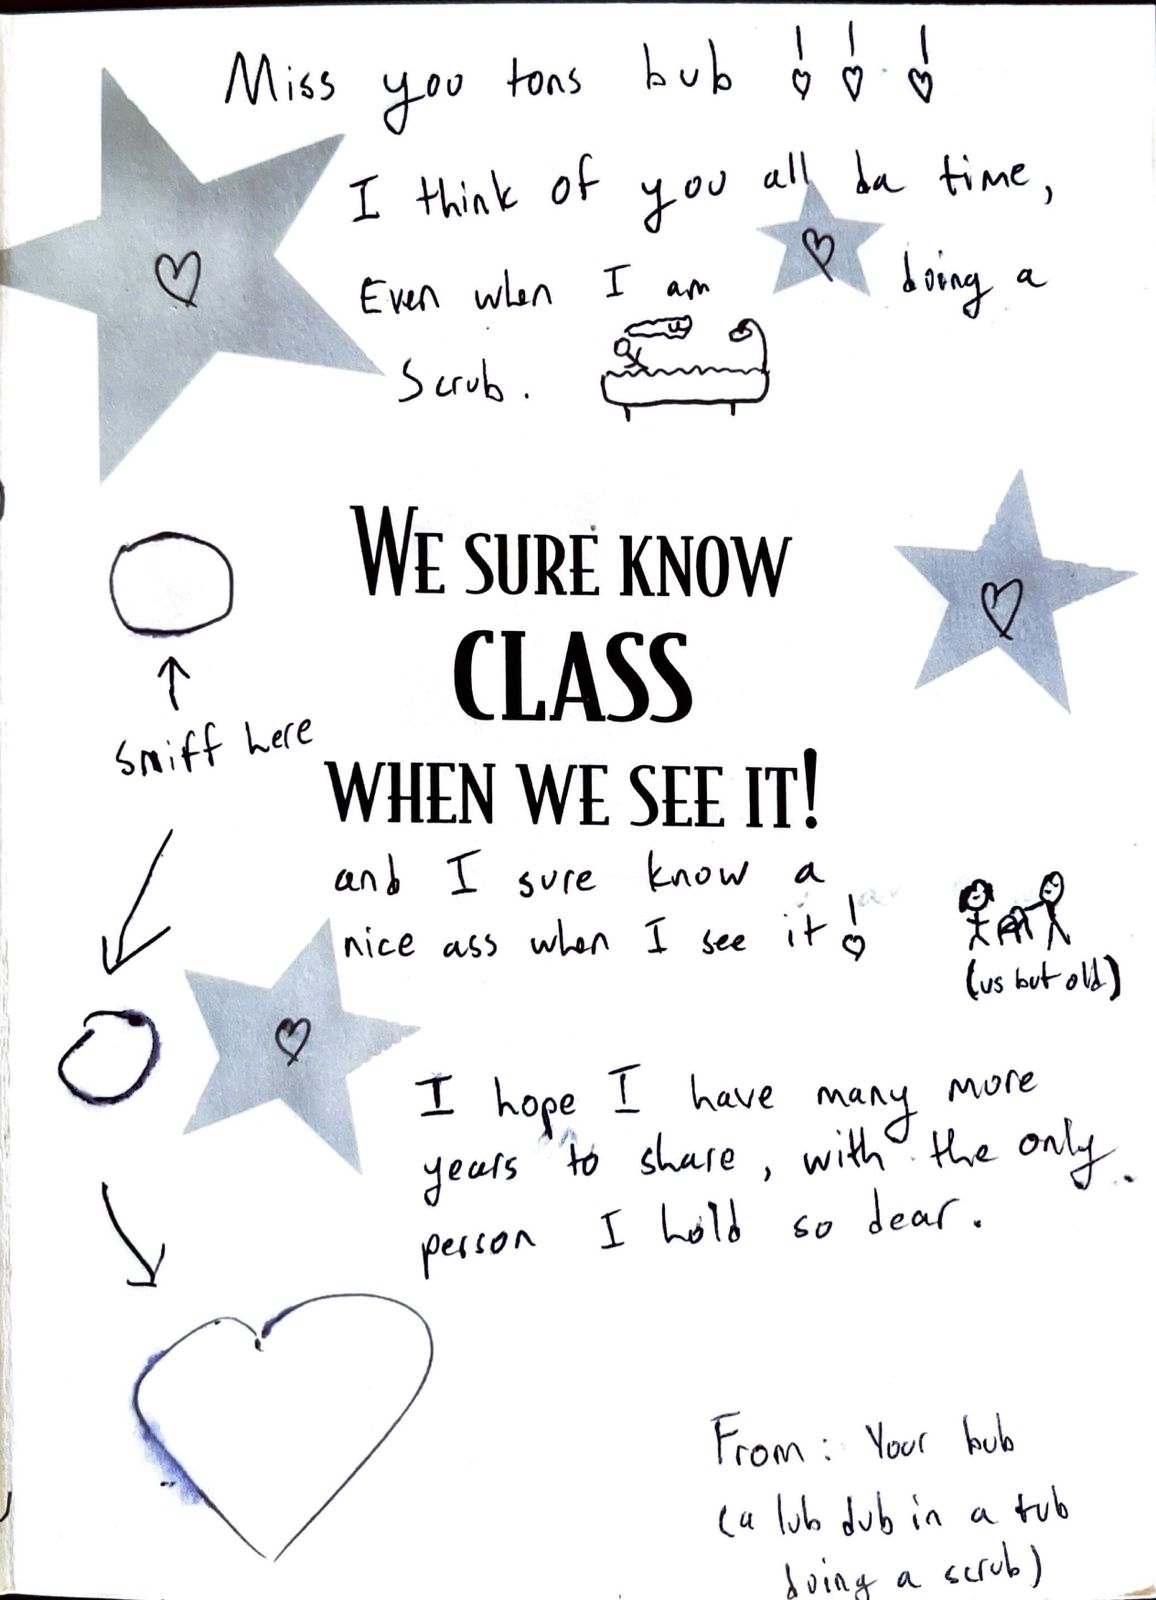 Miss you tons bub !!!
I think of you all da time,
Even when I am doing a
Scrub.
WE SURE KNOW
CLASS
WHEN WE SEE IT!
sniff here
and I sure know a
nice ass when I see it!
(us but old)
I hope I have many more
years to share, with the only
person I hold so dear.
From: Your bub
(a lub dub in a tub
doing a scrub)